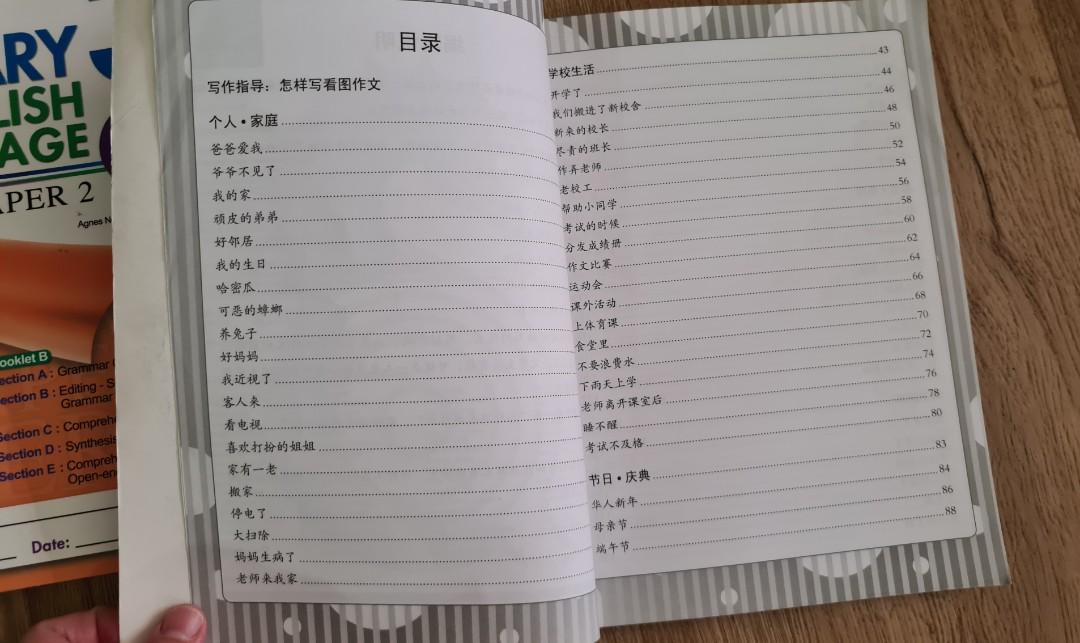 ARY
LISH
AGE
APER 2
Agnes N
ooklet B
ection A : Grammar
ection B : Editing - S
Grammar
Section C : Compreh
Section D : Synthesis
Section E : Compreh
Open-en
Date:
目录
写作指导：怎样写看图作文
个人•家庭
爸爸爱我
爷爷不见了
我的家
顽皮的弟弟
好邻居
我的生日
哈密瓜
可恶的蟑螂
养兔子
好妈妈
我近视了
客人来
看电视
喜欢打扮的姐姐
家有一老
搬家
停电了
大扫除
妈妈生病了
老师来我家
学校生活 43
开学了 44
我们搬进了新校舍 46
新来的校长 48
尽责的班长 50
作弄老师 52
老校工 54
帮助小同学 56
考试的时候 58
分发成绩册 60
作文比赛 62
运动会 64
课外活动 66
上体育课 68
食堂里 70
不要浪费水 72
下雨天上学 74
老师离开课室后 76
睡不醒 78
考试不及格 80
节日•庆典 83
华人新年 84
母亲节 86
端午节 88